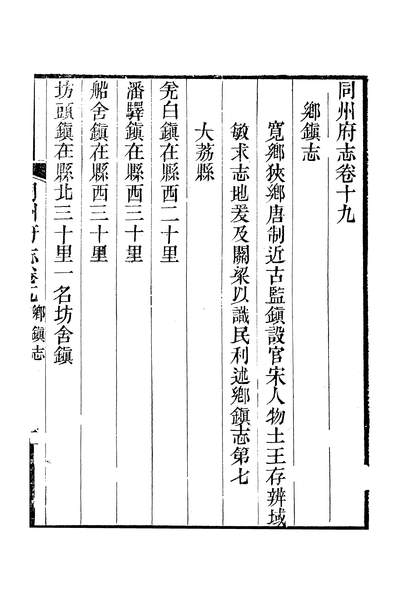 同州府志卷十九
鄉鎮志
寬鄉狹鄉唐制近古監鎮設官宋人物土王存辨域
敏求志地爰及關梁以識民利述鄉鎮志第七
大荔縣
羌白鎮在縣西二十里
潘驛鎮在縣西三十里
船舍鎮在縣西三十里
坊頭鎮在縣北三十里一名坊舍鎮
同州府志卷十九 鄉鎮志 一